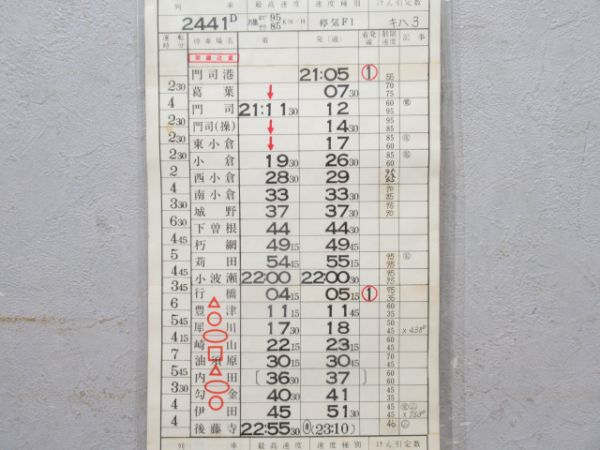 列 車 最 高 速 度 速 度 種 別 けん引定数
2441D 95 KM/H 85 停気F1 キハ3
運転時分 停車場名 着 発(通) 着発線 制限速度 記事
門司港 21:05 ① 55
2 30 葛葉 ↓ 07 30 70 75
4 門司 21:11 30 12 60 95
2 30 門司(操) ↓ 14 30 85 85
2 30 東小倉 ↓ 17 85 60
2 30 小倉 19 30 26 30
2 西小倉 28 30 29
4 南小倉 33 33 30 70 85
4 城野 37 37 30
6 30 下曽根 44 44 30
4 45 朽網 49 15 49 45
5 45 苅田 54 45 55 15 95
4 45 小波瀬 22:00 22:00 30
3 45 行橋 04 15 05 15 ①
6 豊津 11 15 11 45 60 35
5 45 犀川 17 30 18 50 45
4 15 崎山 22 15 23 15
7 油須原 30 15 30 45
5 45 内田 〔36 30 37 〕
3 30 勾金 40 30 41
4 伊田 45 51 30 45 45
4 後藤寺 22:55 30 (23:10) 46
列 車 最 高 速 度 速 度 種 別 けん引定数